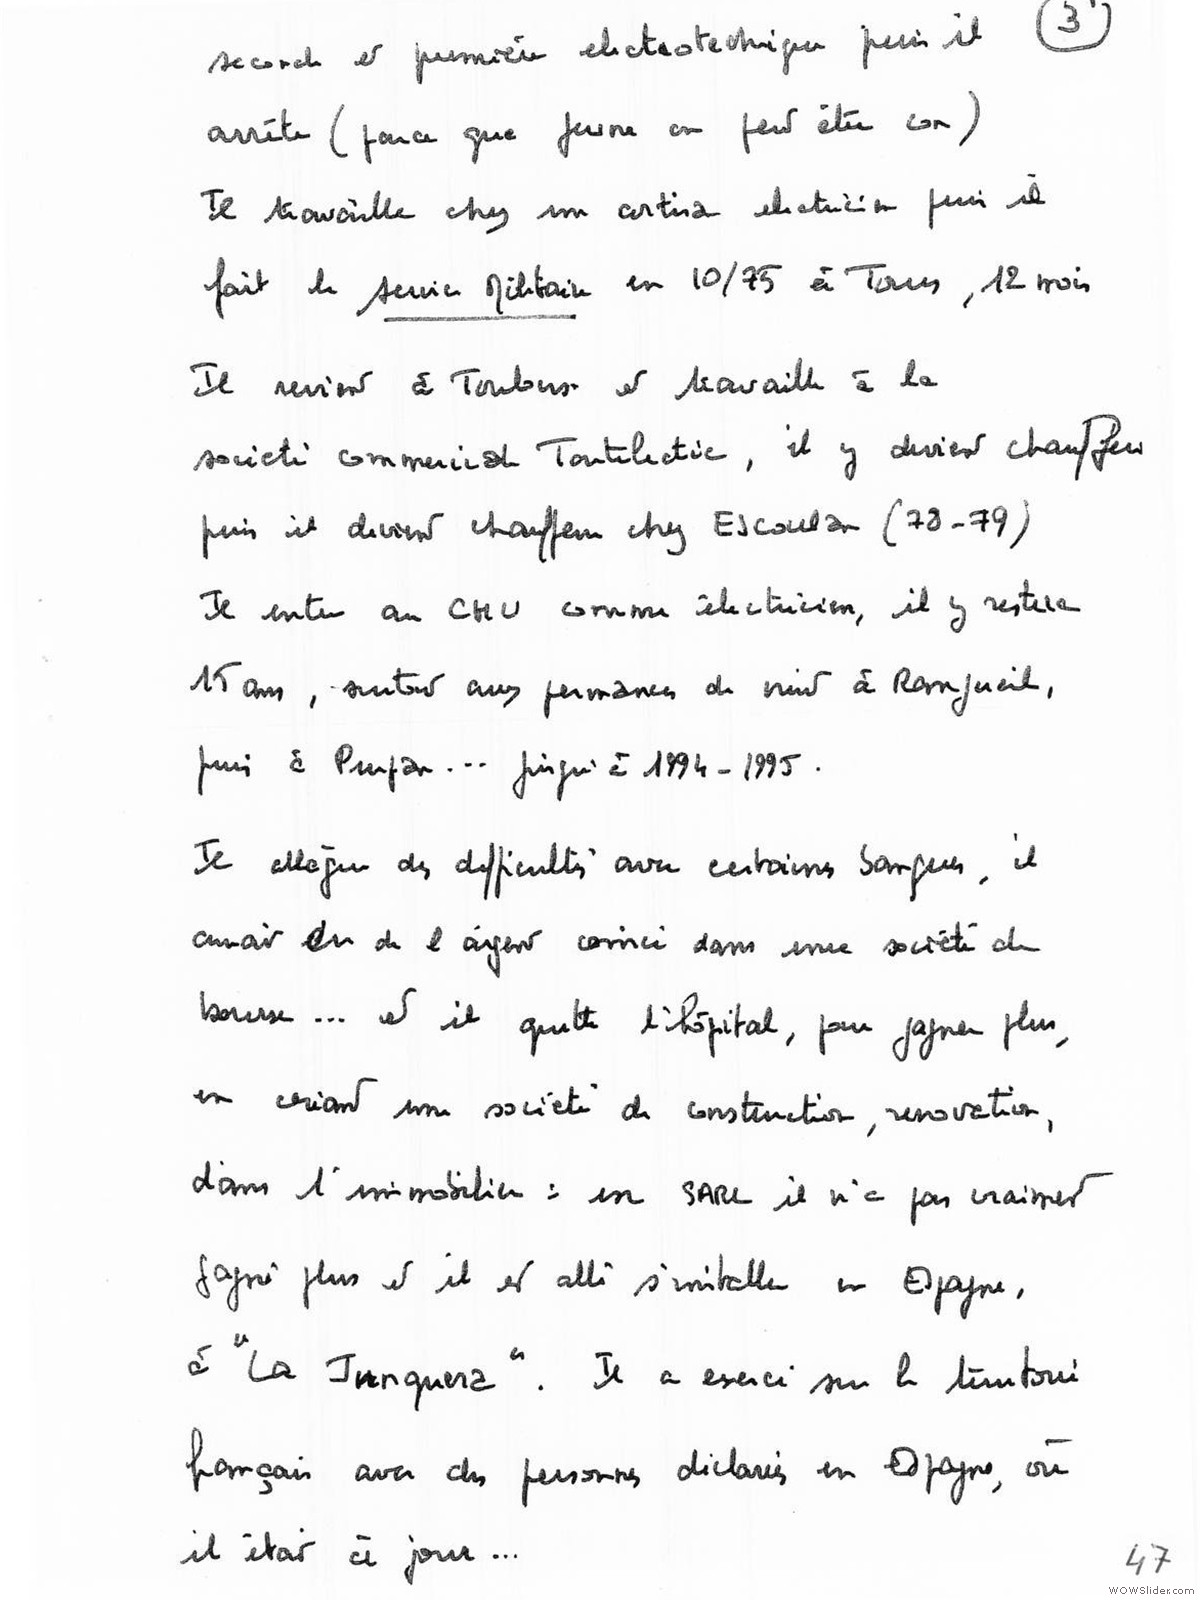 3
seconde et première electrotechnique puis il
arrête (parce que jeune on peut être con)
Il travaille chez un artisan electricien puis il
fait le service Militaire en 10/75 à Tours, 12 mois
Il revient à Toulouse et travaille à la
société commerciale Toutelectric, il y devient chauffeur
puis il devient chauffeur chez Escoulan (78-79)
Il entre au CHU comme électricien, il y restera
15 ans, surtout aux permanences de nuit à Rangueil,
puis à Purpan... jusqu'à 1994-1995.
Il allègue des difficultés avec certaines banques, il
aurait eu de l'argent coincé dans une société de
bourse... et il quitte l'hôpital, pour gagner plus,
en créant une société de construction, renovation,
dans l'immobilier : en SARL il n'a pas vraiment
gagné plus et il est allé s'installer en Espagne,
à "La Junquera". Il a exercé sur le territoire
français avec des personnes déclarées en Espagne, où
il était à jour...
47
WOWSlider.com